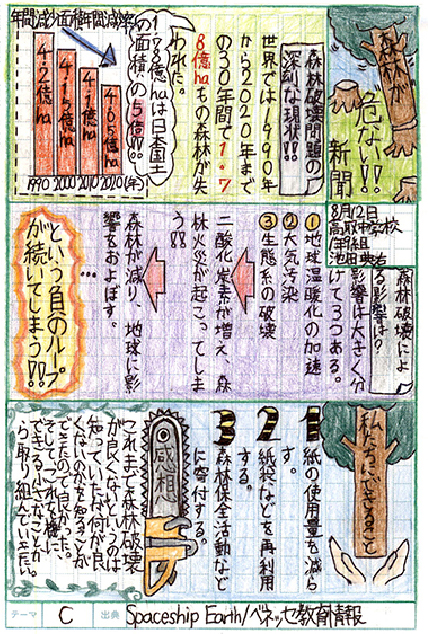 森林が
危ない!!
新聞
8月12日
高取中学校
1年9組
森林破壊問題の
深刻な現状!!
世界では1990年
から2020年まで
の30年間で1.7
8億haもの森林が失
われた。
1.78億haは日本国土
の面積の5倍!!
年間減少面積年間減少率
42億ha
41.5億ha
41億ha
40.5億ha
1990 2000 2010 2020 (年)
森林破壊によ
る影響は?
影響は大きく分
けて3つある。
①地球温暖化の加速
②大気汚染
③生態系の破壊
二酸化炭素が増え、森
林火災が起こってしま
う!!
森林が減り、地球に影
響をおよぼす。
…
という負のループ
が続いてしまう!!
私たちにできること
1 紙の使用量を減ら
す。
2 紙袋などを再利用
する。
3 森林保全活動など
に寄付する。
感想
これまで森林破壊
が良くないというのは
知っていたが何が良
くないのかを知ることが
できたので良かった。
そして、これを機に
できる小さなことか
ら取り組んでいきたい。
テーマ C 出典 Spaceship Earth/ベネッセ教育情報